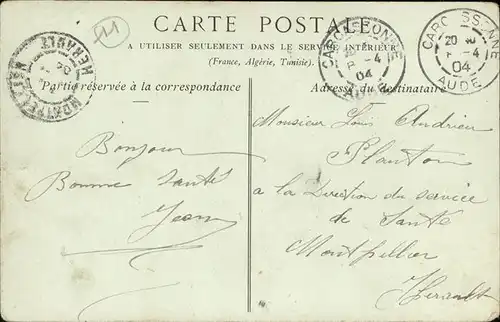 11
CARTE POSTALE
A UTILISER SEULEMENT DANS LE SERVICE INTÉRIEUR
(France, Algérie, Tunisie).
Partie réservée à la correspondance
Adresse du destinataire
MONTPELLIER HERAULT
CARCASSONNE
-4
04
AUDE
CARCASSONNE
20 -4
04
AUDE
Bonjour
Bonne santé
Jean
Monsieur Louis Andrieu
Planton
a la Direction du service
de Santé
Montpellier
Hérault